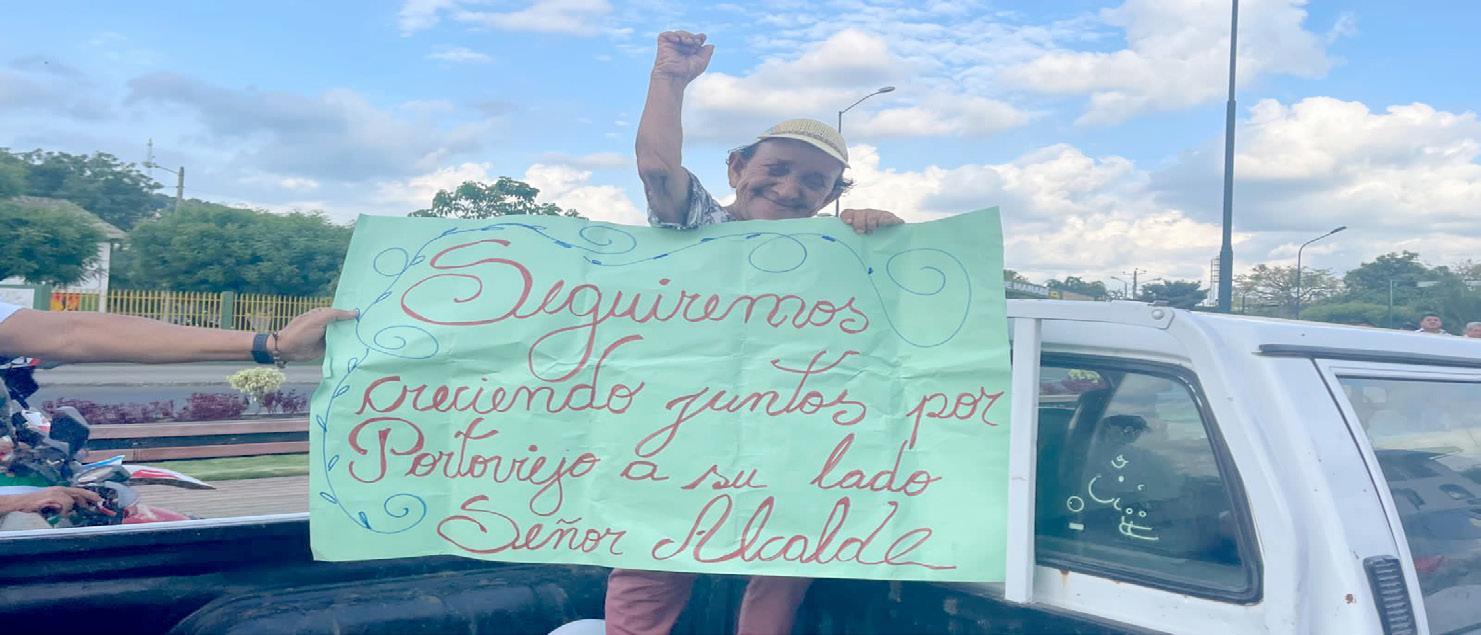 Seguiremos
creciendo juntos por
Portoviejo a su lado
Señor Alcalde